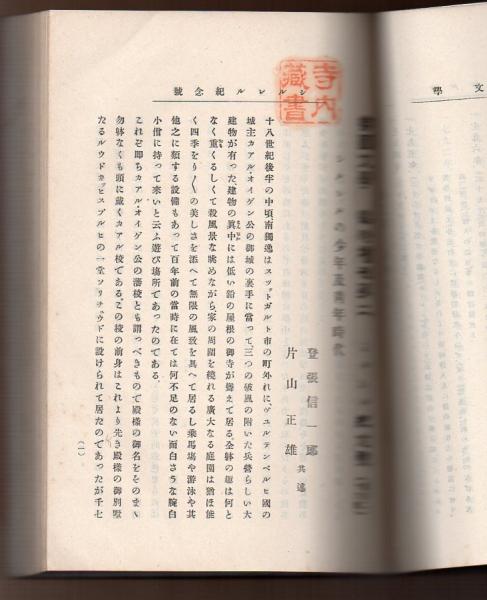 シルレル紀念號
寺内
藏書
ルの少年及青年時代
登張信一郎
片山正雄
共述
十八世紀後半の中頃南獨逸はスツットガルト市の町外れに、ヴュルテンベルヒ國の
城主カアル・オイゲン公の御城の裏手に當つて、三つの破風の附いた兵營らしい大
建物が有つた建物の眞中には低い鉛の屋根の御寺が聳えて居る、全躰の趣は何と
なく重くるしくて殺風景な眺めながら、家の周圍を繞れる廣大なる庭園は猶ほ能
く四季をり〱の美しさを添へて無限の風致を具へて居るし乘馬塲や游泳や其
他之に類する設備もあつて百年前の當時に在ては何不足のない面白さうな腕白
小僧に持つて來いと云ふ遊び塲所であつたのである。
これぞ即ちカアル・オイゲン公の藩校とも謂つべきもので殿樣の御名をそのまゝ
勿躰なくも頭に戴くカアル校である、この校の前身はこれより先き殿樣の御別墅
たるソリチウドに設けられて居たのであつたが千七
(一)
文學